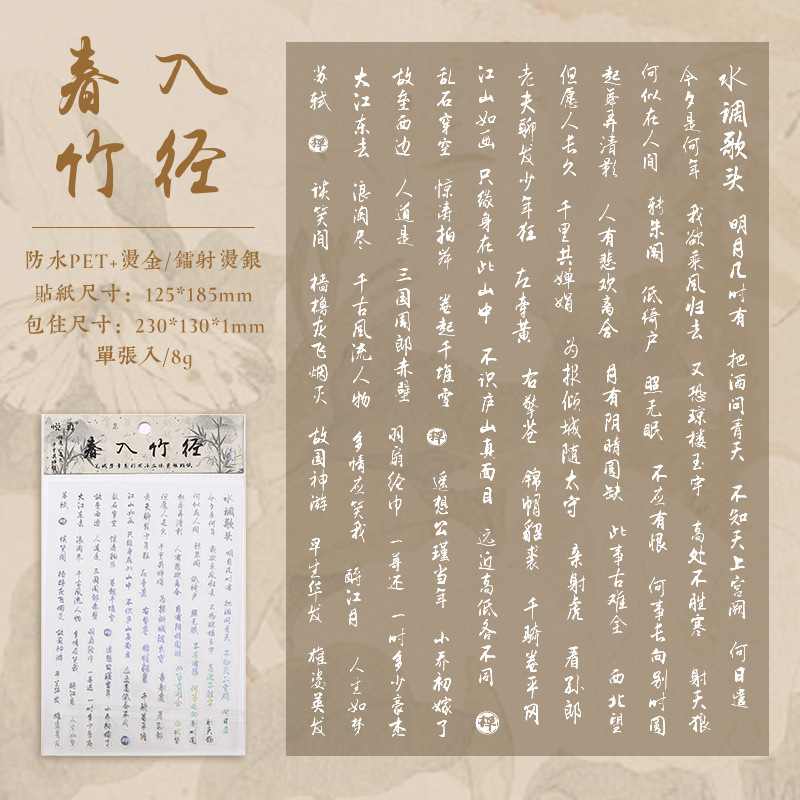 春入
竹径
防水PET+燙金/鐳射燙銀
貼紙尺寸：125*185mm
包住尺寸：230*130*1mm
單張入/8g
水调歌头 明月几时有 把酒问青天 不知天上宫阙 何日遣
今夕是何年 我欲乘风归去 又恐琼楼玉宇 高处不胜寒 射天狼
何似在人间 转朱阁 低绮户 照无眠 不应有恨 何事长向别时圆
起舞弄清影 人有悲欢离合 月有阴晴圆缺 此事古难全 西北望
但愿人长久 千里共婵娟 为报倾城随太守 亲射虎 看孙郎
老夫聊发少年狂 左牵黄 右擎苍 锦帽貂裘 千骑卷平冈
江山如画 只缘身在此山中 不识庐山真面目 远近高低各不同 禅
乱石穿空 惊涛拍岸 卷起千堆雪 禅 遥想公瑾当年 小乔初嫁了
故垒西边 人道是 三国周郎赤壁 羽扇纶巾 一尊还 一时多少豪杰
大江东去 浪淘尽 千古风流人物 多情应笑我 酹江月 人生如梦
苏轼 禅 谈笑间 樯橹灰飞烟灭 故国神游 早生华发 雄姿英发
春入竹径